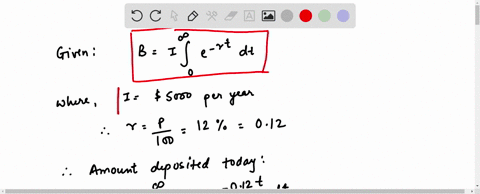 Given: B = I ∫₀^∞ e^{-rt} dt
where, I = $ 5000 per year
∴ r = P/100 = 12 % = 0.12
∴ Amount deposited today:
∞ -0.12t dt